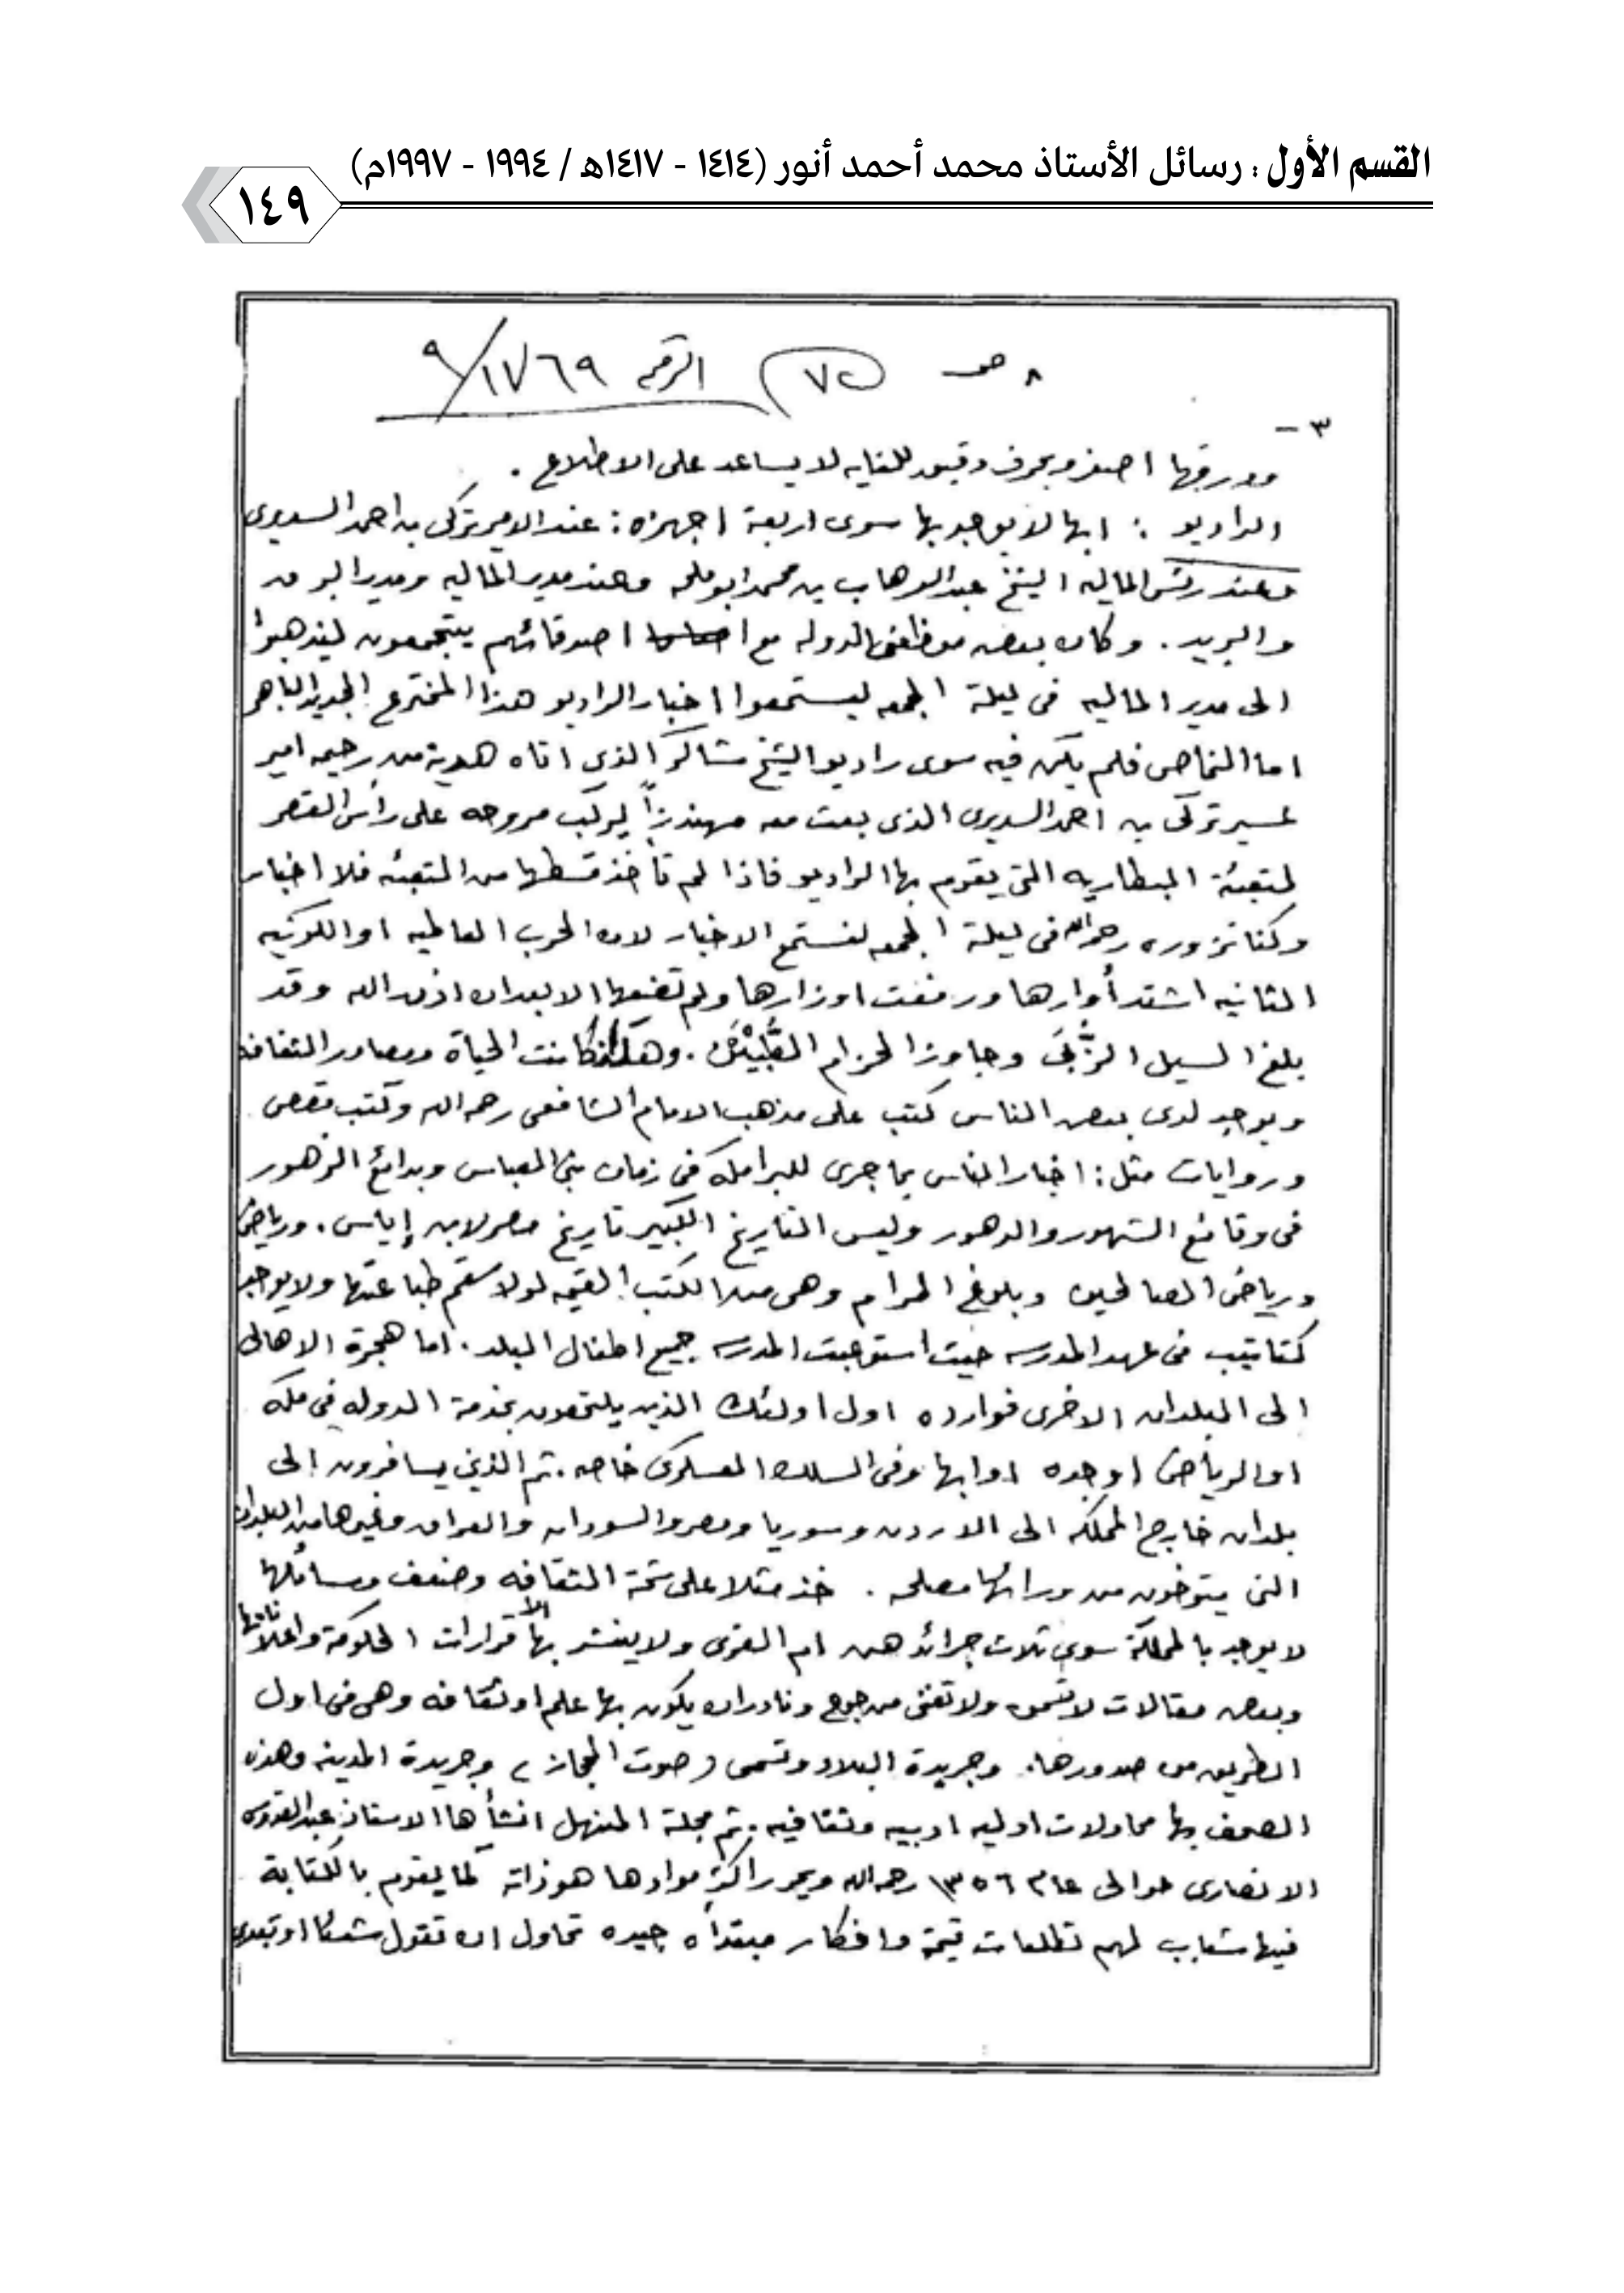 القسم الأول : رسائل الأستاذ محمد أحمد أنور (١٤١٤ - ١٤١٧هـ / ١٩٩٤ - ١٩٩٧م)
١٤٩
٨ ص ٧٥ الرقم ٩/١٧٦٩
٣ –
وورقها اصفر وبحرف دقيق للغايه لا يساعد على الاطلاع .
الراديو : ابها لا يوجد بها سوى اربعة اجهزه : عند الامير تركى بن احمد السديرى
وعند رئس الماليه الشيخ عبد الوهاب بن محمد ابو ملحه وعند مدير الماليه ومدير البرق
والبريد . وكان بعض موظفى الدوله مع اصدقائهم يتجمعون ليذهبوا
الى مدير الماليه فى ليلة الجمعه ليستمعوا اخبار الراديو هذا المخترع الجديد الباهر
اما النماص فلم يكن فيه سوى راديو الشيخ شاكر الذى اتاه هدية من رحيمه امير
عسير تركى بن احمد السديرى الذى بعث معه مهندزاً ليركب مروحه على رأس القصر
لتعبئة البطاريه التى يقوم بها الراديو فاذا لم تأخذ قسطها من التعبئه فلا اخبار
وكنا نزوره رحمه الله فى ليلة الجمعه لنستمع الاخبار لان الحرب العالميه او الكونيه
الثانيه اشتد أوارها ورفعت اوزارها ولم تضعها الا بعد ان اذن الله وقد
بلغ السيل الزُّبَى وجاوز الحزام الطُّبْيَيْن . وهكذا كانت الحياة ومصادر الثقافه
ويوجد لدى بعض الناس كتب على مذهب الامام الشافعى رحمه الله وكتب قصص
وروايات مثل : اخبار الناس بما جرى للبرامكه فى زمان بنى العباس وبدائع الزهور
فى وقائع الشهور والدهور وليس التاريخ الكبير تاريخ مصر لابن إياس . ورياض
ورياض الصالحين وبلوغ المرام وهى من الكتب القيمه لولا سقم طباعتها ولا يوجد
كتاتيب فى عهد المدرسه حيث استوعبت المدرسه جميع اطفال البلد . اما هجرة الاهالى
الى البلدان الاخرى فوارده اول اولئك الذين يلتحقون بخدمة الدوله فى مكه
او الرياض او جده او ابها وفى السلك العسكرى خاصه . ثم الذين يسافرون الى
بلدان خارج المملكه الى الاردن وسوريا ومصر والسودان والعراق وغيرها من البلدان
التى يتوخون من ورائها مصلحه . خذ مثلا على شحة الثقافه وضعف وسائلها
لا يوجد بالمملكة سوى ثلاث جرائد هى ام القرى ولا ينشر بها الا قرارات الحكومة واعلاناتها
وبعض مقالات لا تسمن ولا تغنى من جوع ونادرا ان يكون بها علم او ثقافه وهى فى اول
الطريق من صدورها . وجريدة البلاد وتسمى ( صوت الحجاز ) وجريدة المدينه وهذه
الصحف بها محاولات اوليه ادبيه وثقافيه . ثم مجلة المنهل انشأها الاستاذ عبد القدوس
الانصارى حوالى عام ١٣٥٦ رحمه الله ويحرر اكثر موادها هو ذاته كما يقوم بالكتابة
فيها شباب لهم تطلعات قيمة وافكار مبتدأه جيده تحاول ان تقول شيئا او تبدى